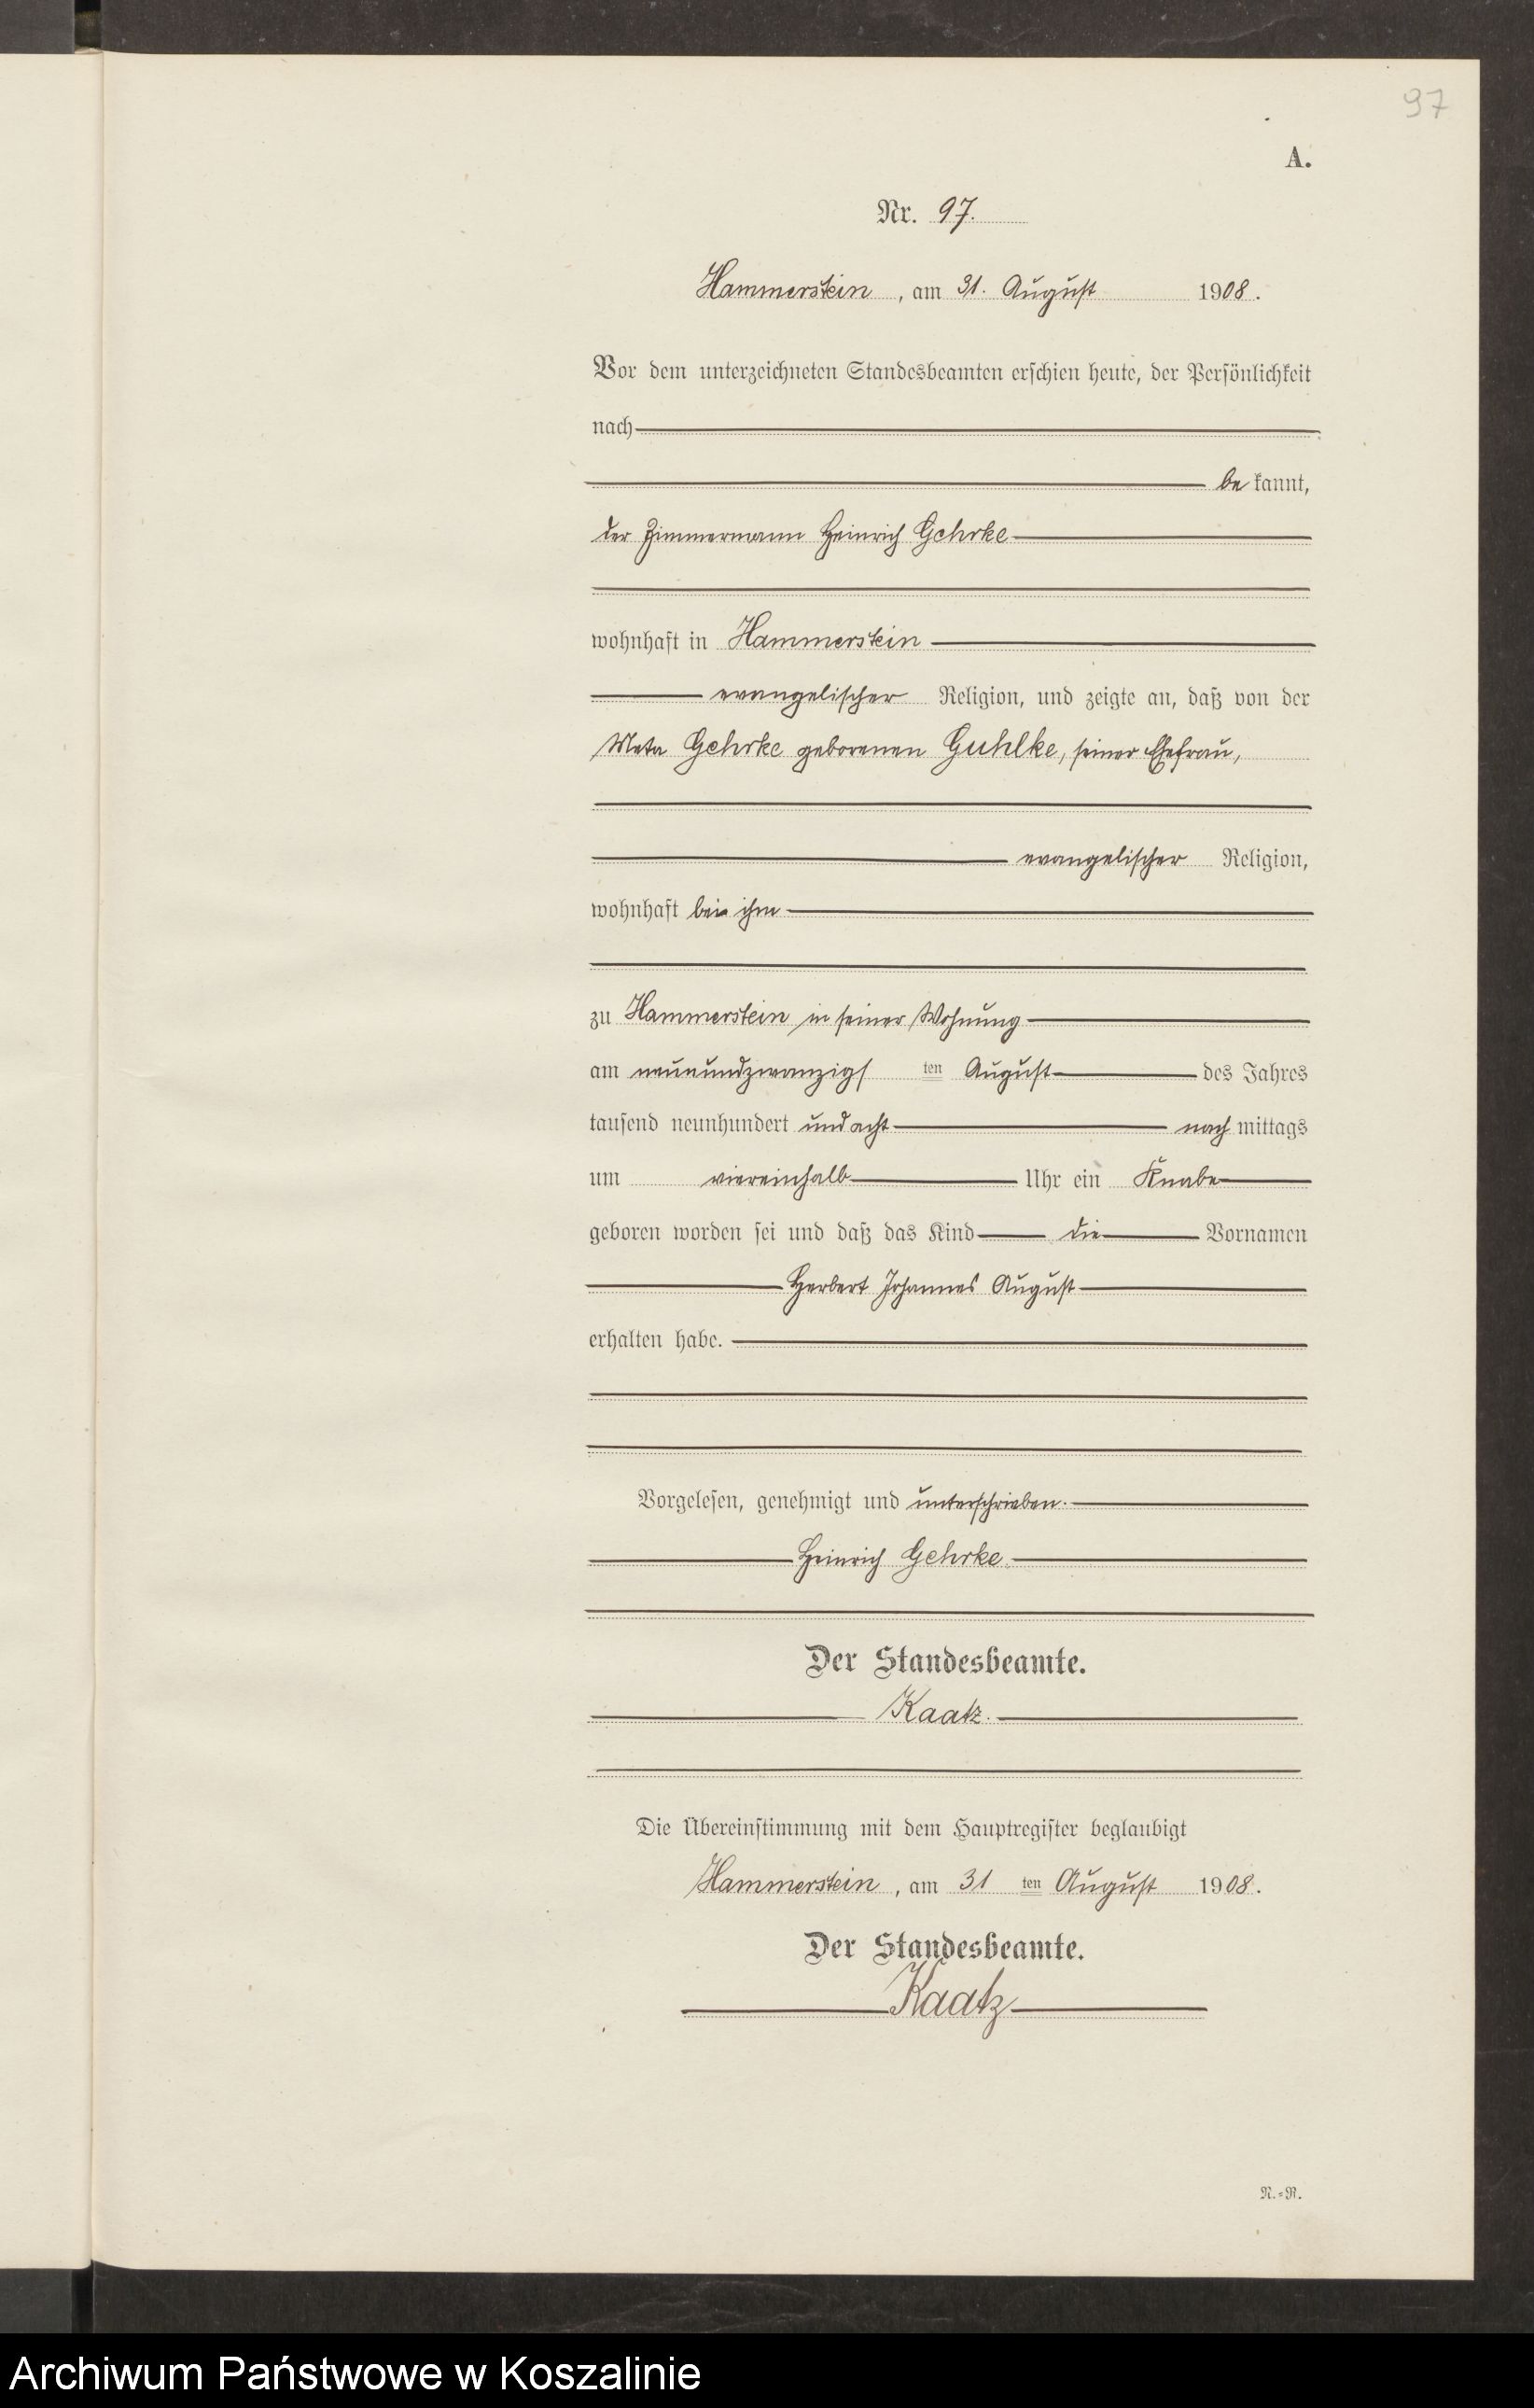 97
A.
Nr. 97.
Hammerstein, am 31. August 1908.
Vor dem unterzeichneten Standesbeamten erschien heute, der Persönlichkeit
nach
be kannt,
der Zimmermann Heinrich Gehrke
wohnhaft in Hammerstein
evangelischer Religion, und zeigte an, daß von der
Meta Gehrke geborenen Guhlke, seiner Ehefrau,
evangelischer Religion,
wohnhaft bei ihm
zu Hammerstein in seiner Wohnung
am neunundzwanzigs ten August des Jahres
tausend neunhundert und acht nach mittags
um viereinhalb Uhr ein Knabe
geboren worden sei und daß das Kind die Vornamen
Herbert Johannes August
erhalten habe.
Vorgelesen, genehmigt und unterschrieben.
Heinrich Gehrke.
Der Standesbeamte.
Kaatz.
Die Übereinstimmung mit dem Hauptregister beglaubigt
Hammerstein, am 31 ten August 1908.
Der Standesbeamte.
Kaatz
N.=R.
Archiwum Państwowe w Koszalinie